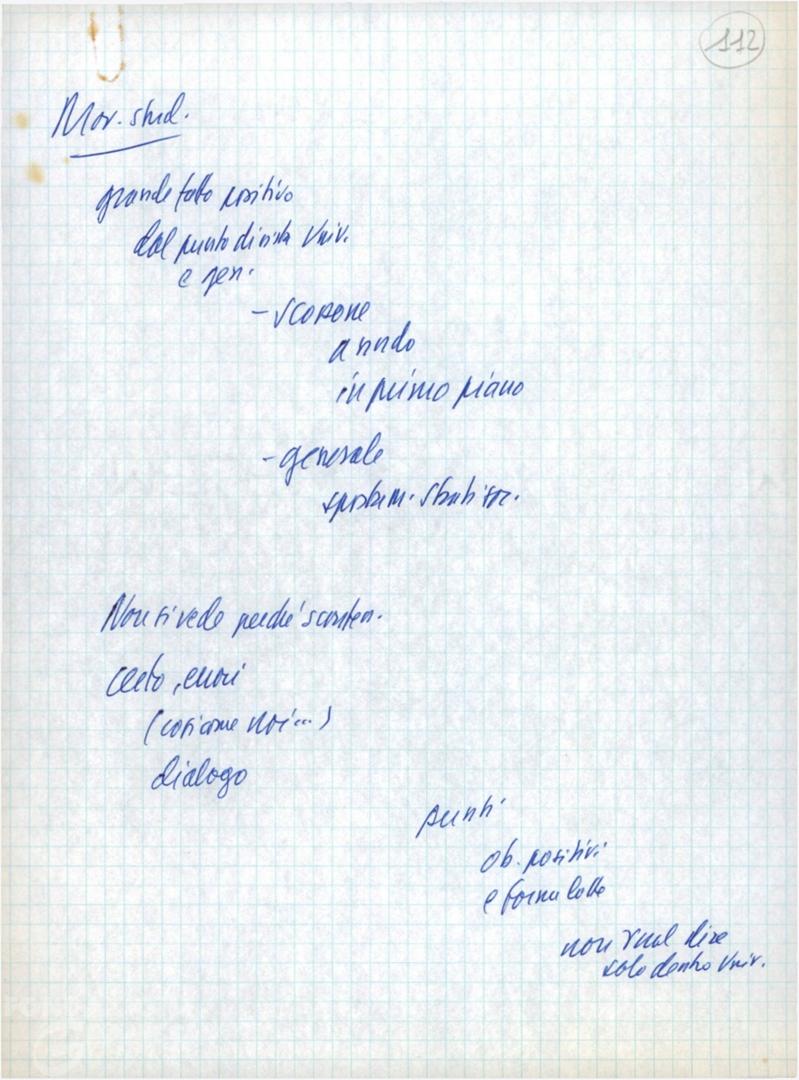 112
Mov. stud.
grande fatto positivo
dal punto di vista Univ.
e gen.
- scossone
a nudo
in primo piano
- generale
spostam. strati soc.
Non si vede perché sconten.
Certo, errori
(così come noi...)
dialogo
punti
ob. positivi
e forme lotta
non vuol dire
solo dentro Univ.